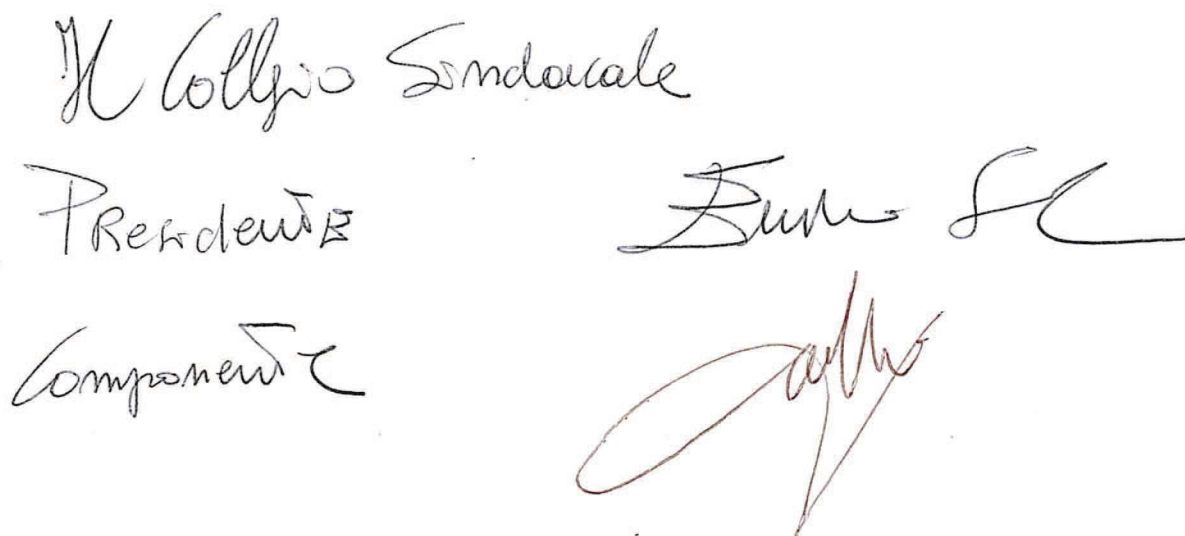 Il Collegio Sindacale
Presidente
Componente